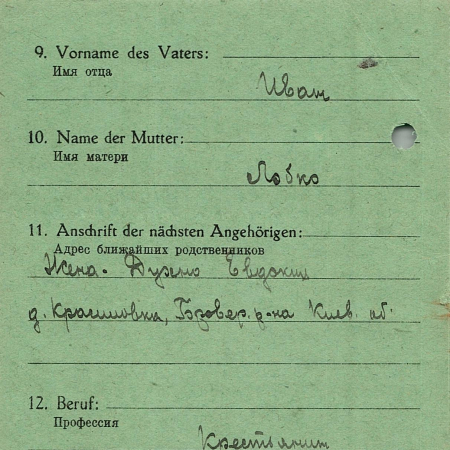 9. Vorname des Vaters:
Имя отца
Иван
10. Name der Mutter:
Имя матери
Лобко
11. Anschrift der nächsten Angehörigen:
Адрес ближайших родственников
Жена - Евдокия
д. Красиловка, Бровар. р-на Киев. об.
12. Beruf:
Профессия
Крестьянин